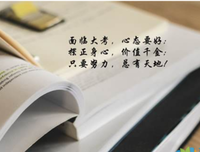 面临大考，心态要好；
摆正身心，价值千金；
只要努力，总有天地！